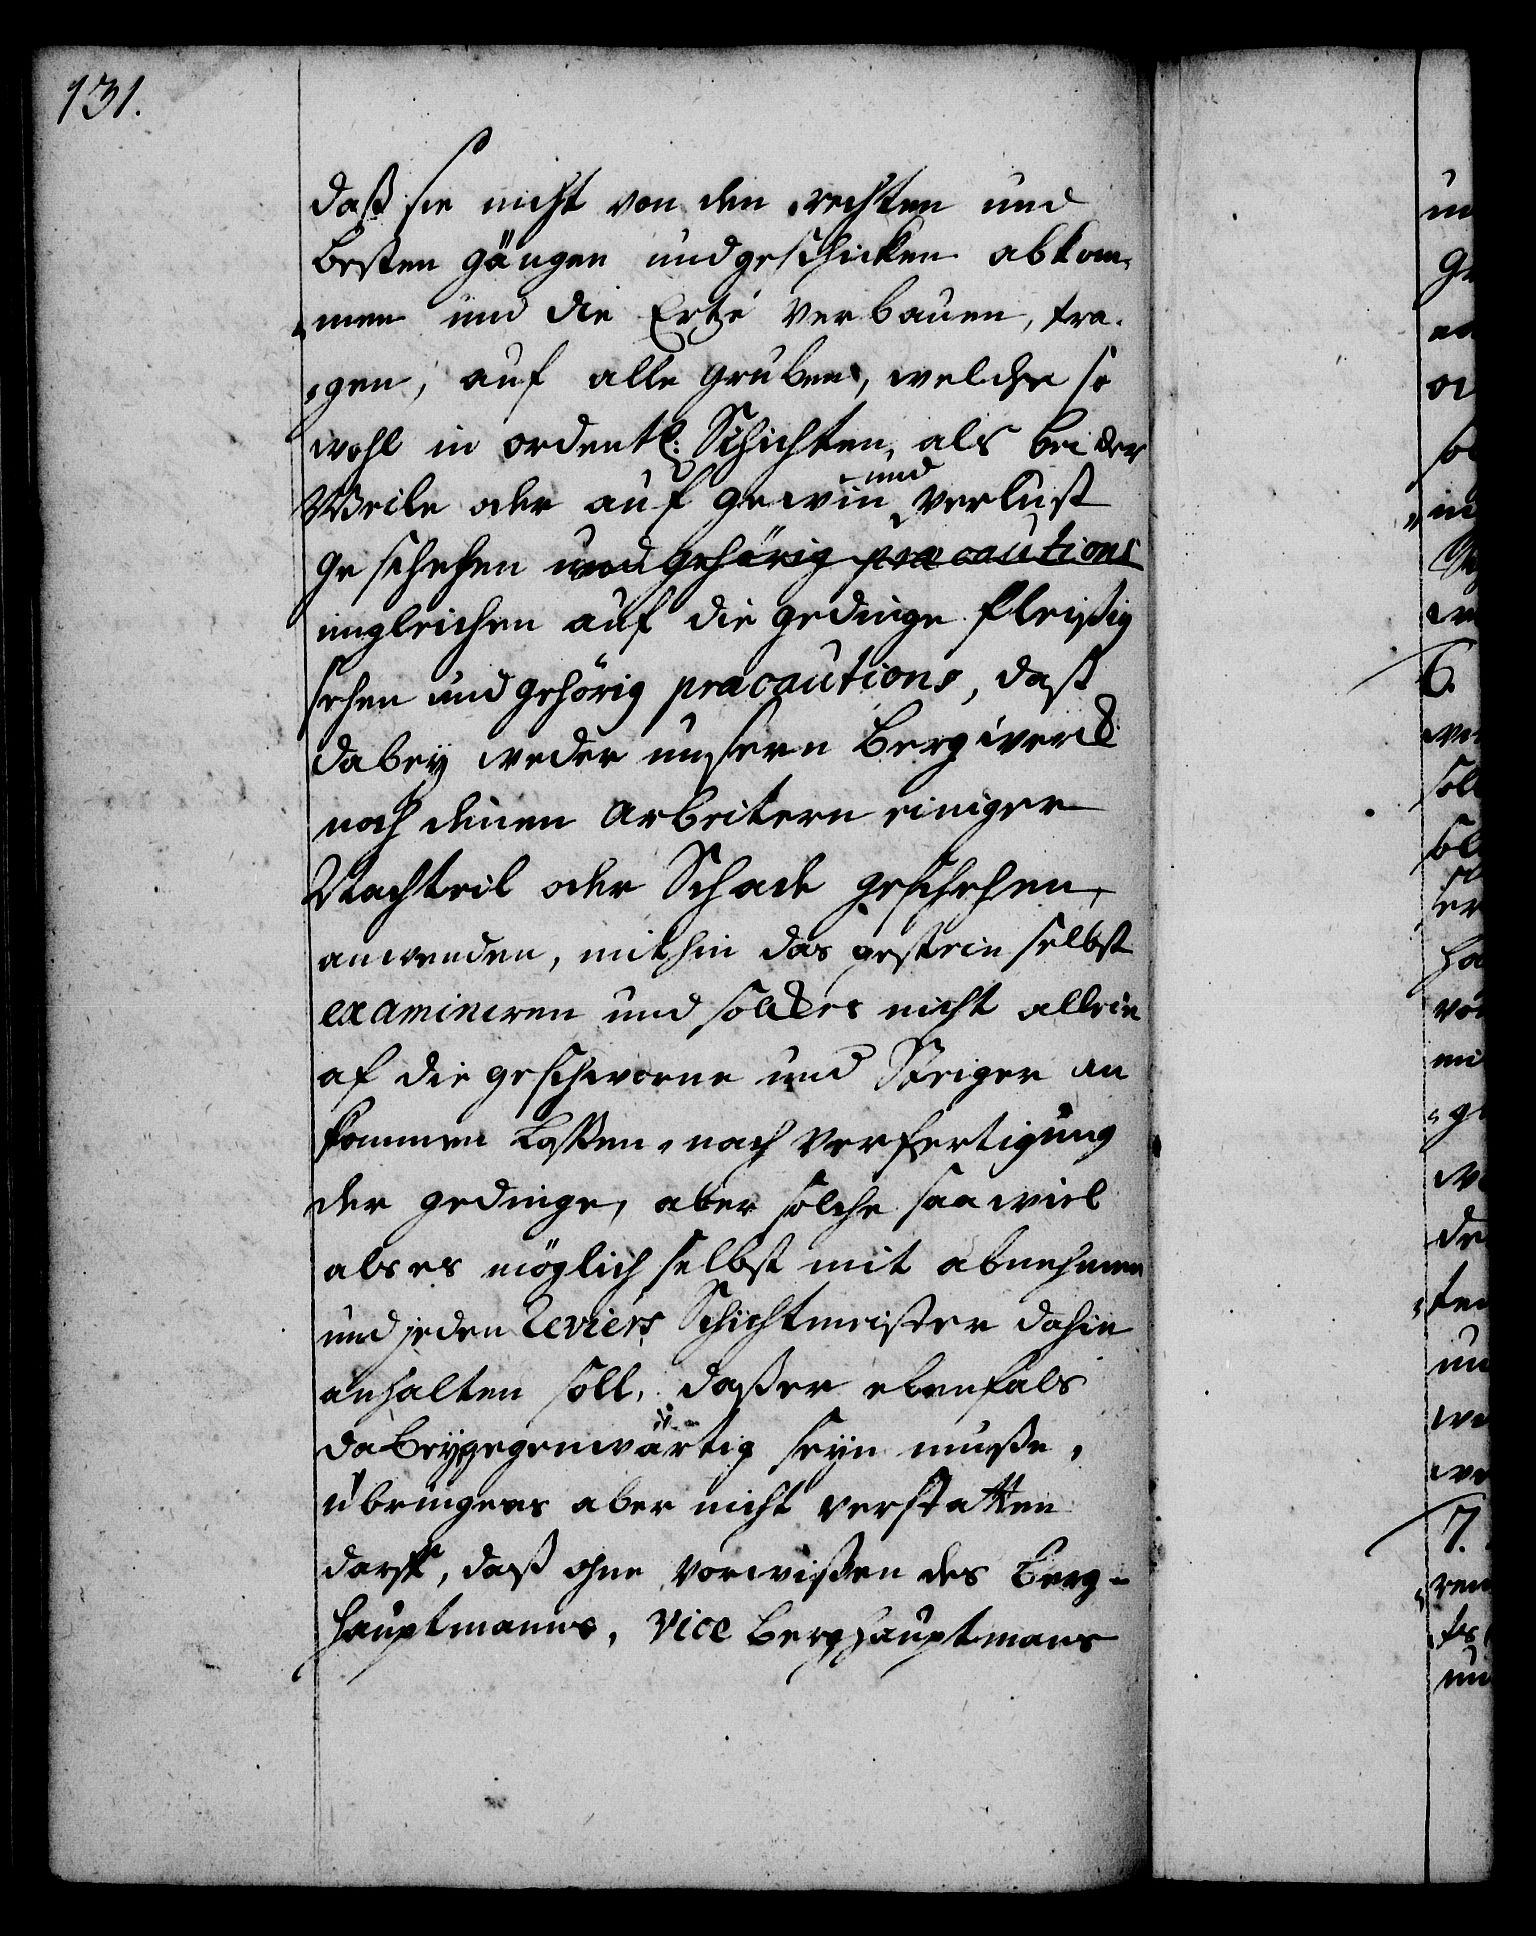 131.
daß sie nicht von den rechten und
besten gängen und geschicken abkom-
men und die Ertze verbauen, tra-
gen, auf alle gruben, welche so
wohl in ordentl: Schichten, als bei der
und
Weile oder auf gewin verlust
geschehen und gehörig præcautions
imgleichen auf die gedinge fleißig
sehen und gehörig præcautions, daß
dabey weder unsern Bergwerck
noch denen Arbeitern einiger
Nachteil oder Schade geschehen,
anwenden, mithin das gestein selbst
examiniren und solches nicht allein
af die geschworne und Steiger an
kommen lassen, nach Verfertigung
der gedinge, aber solche saa viel
als es möglich selbst mit abnehmen
und jeden Reviers Schichtmeister dahin
anhalten soll, daß er ebenfals
dabey gegenwärtig seyn muße,
übringens aber nicht verstatten
darff, daß ohne Vorwißen des Berg-
hauptmanns, Vice Berghauptmans
6.
7.